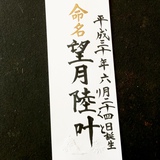 平成三十年六月二十四日誕生
命名
望月陸叶